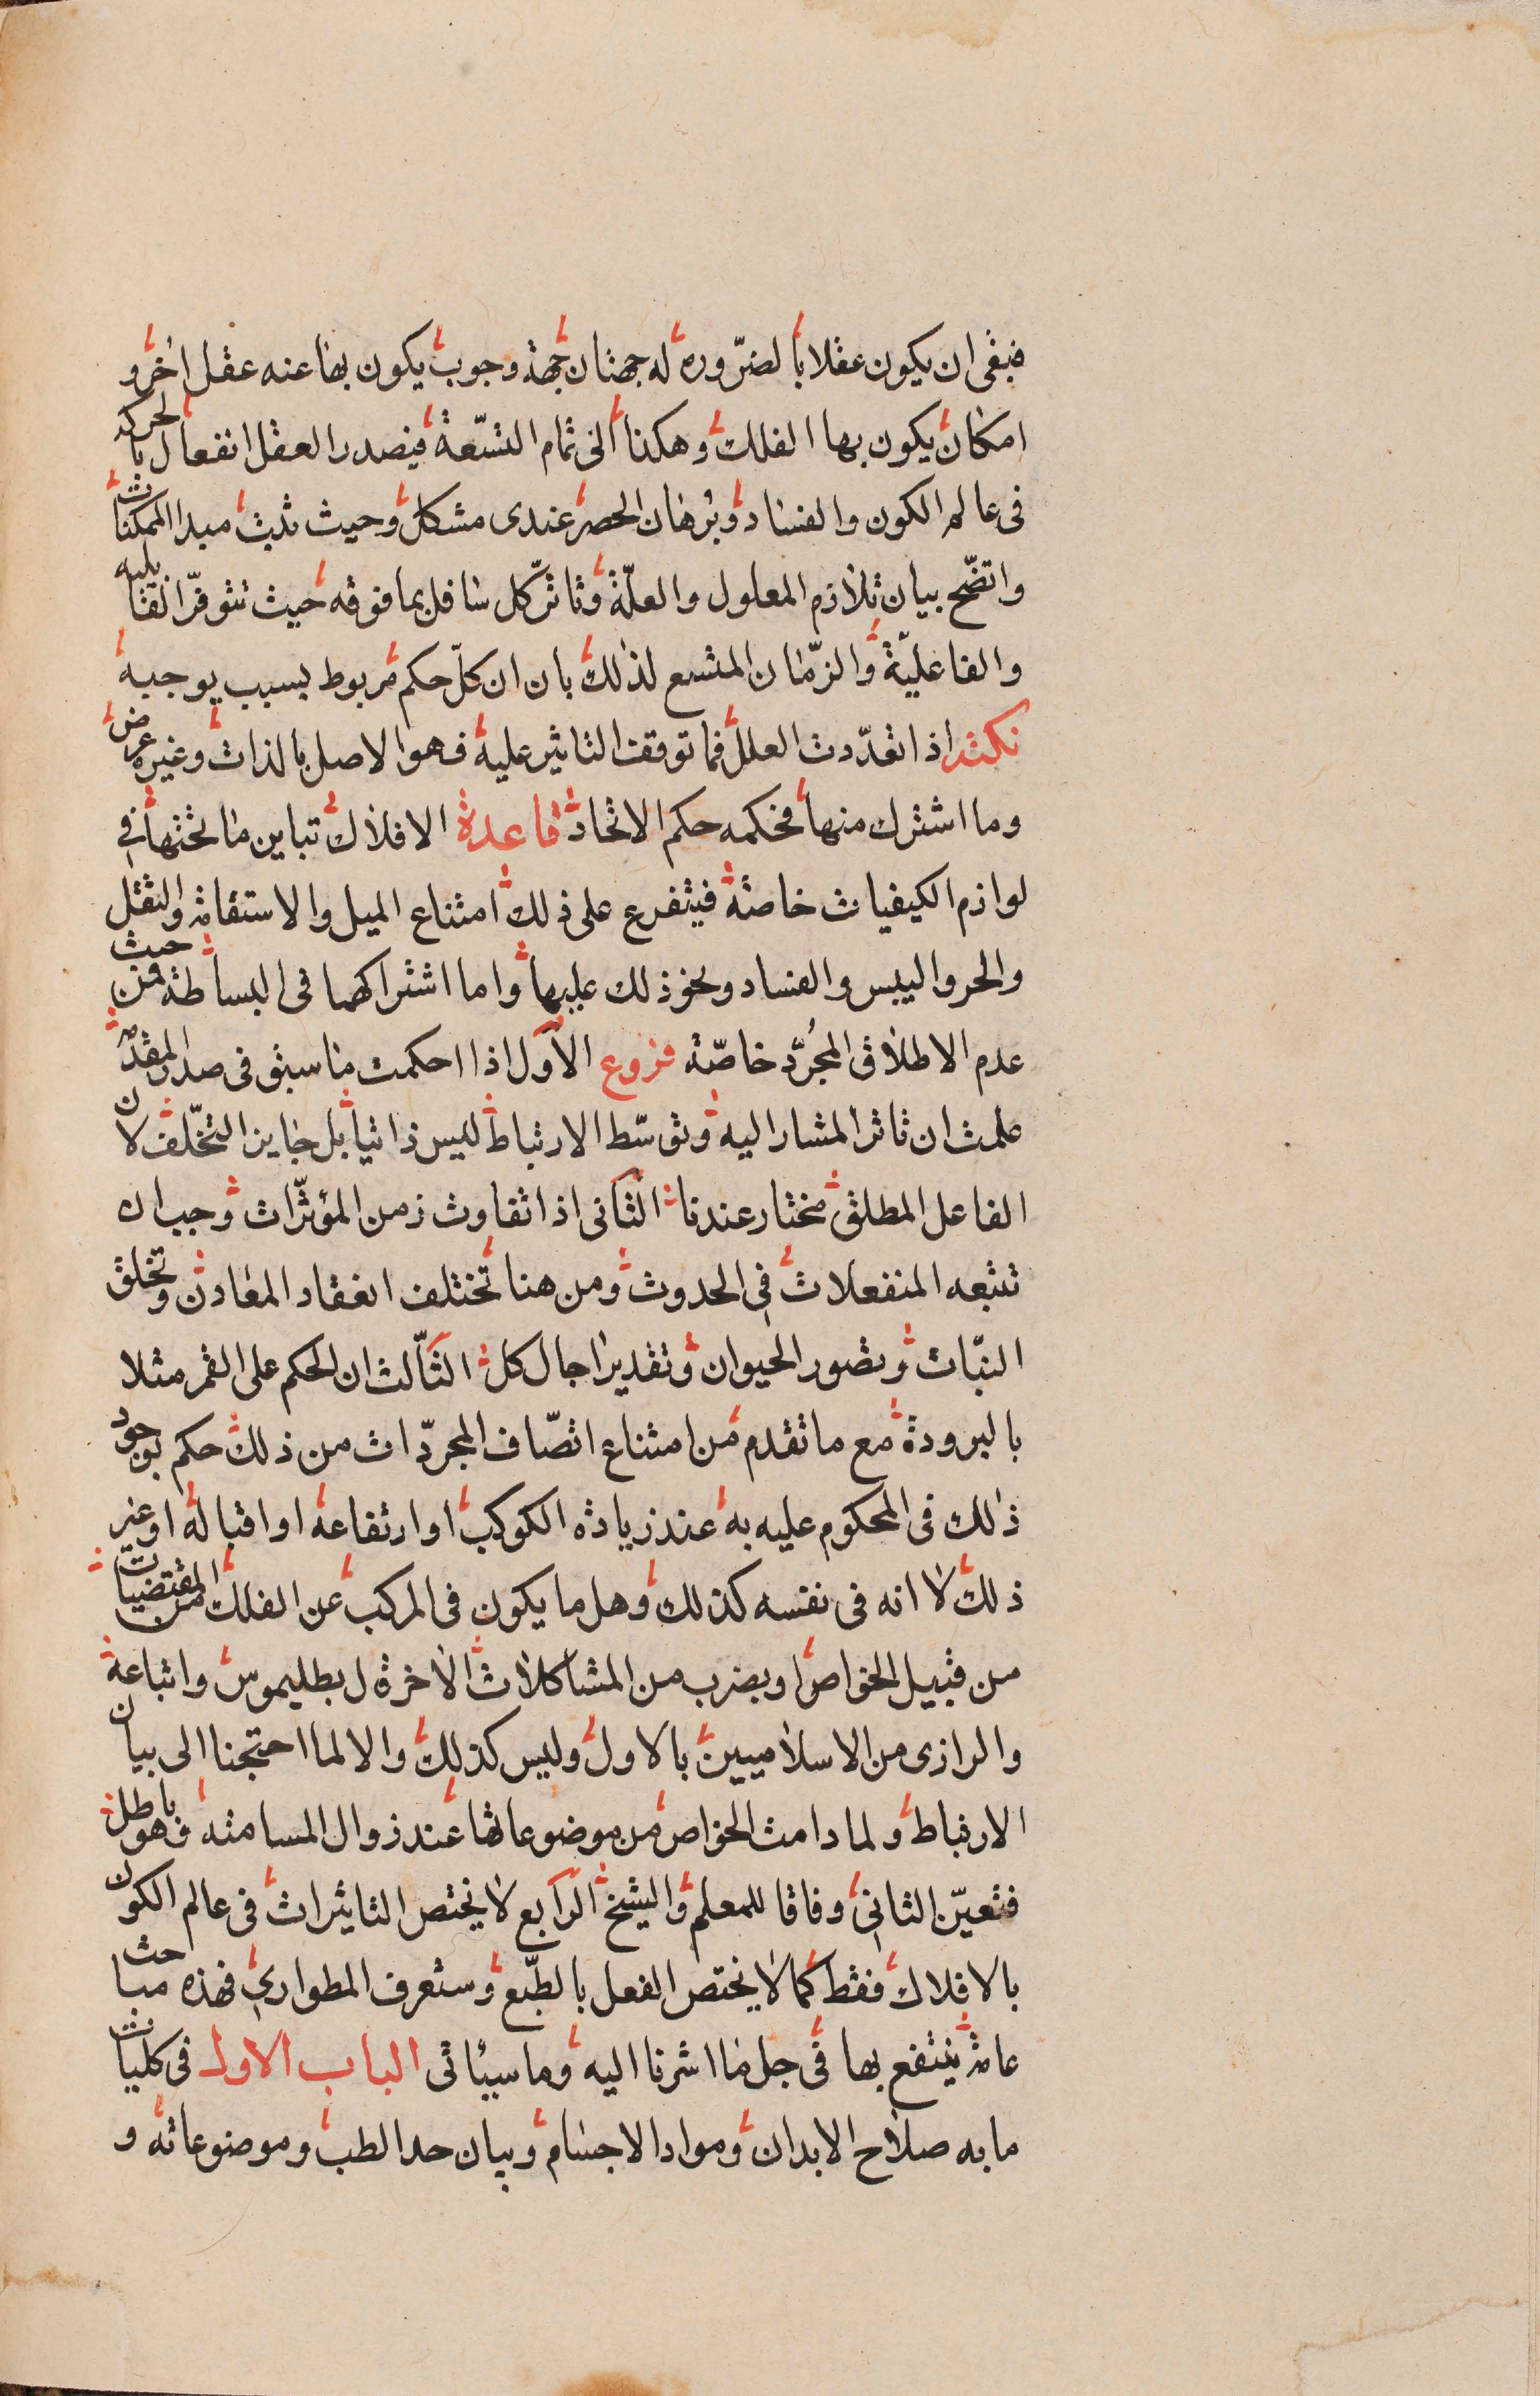 فبقى ان يكون عقلا بالضّروره له جهتان جهة وجوب يكون بها عنه عقل اخر و
امكان يكون بها الفلك وهكذا الى تمام التسّعة فيصدر العقل انفعال بالحركة
فى عالم الكون والفساد وبرهان الحصر عندى مشكل وحيث ثبت مبدا الممكنات
واتضّح بيان تلازم المعلول والعلّة وتاثّر كل سافل بما فوقه حيث تتوفّر القابليه
والفاعليّة والزّمان المتسع لذلك بان ان كلّ حكم مربوط بسبب يوجبه
نكتة اذا تعدّدت العلل فما توقفت التاثير عليه فهو الاصل بالذات وغيره عرض
وما اشترك منها فحكمه حكم الاتحاد قاعدة الافلاك تباين ما تحتها فى
لوازم الكيفيات خاصة فيتفرع على ذلك امتناع الميل والاستقامة والثقل
والحر واليبس والفساد ونحو ذلك عليها واما اشتراكهما فى البساطة فمن حيث
عدم الاطلاق المجرّد خاصّة فروع الاول اذا احكمت ما سبق فى صدر المقدمة
علمت ان تاثر المشار اليه وتوسّط الارتباط ليس ذاتيا بل جايز التخّلف لان
الفاعل المطلق مختار عندنا الثانى اذا تفاوت زمن المؤثّرات وجب ان
تتبعه المنفعلات فى الحدوث ومن هنا تختلف انعقاد المعادن وتخلق
النبّات وتصور الحيوان وتقدير اجال كل الثالث ان الحكم على القمر مثلا
بالبرودة مع ما تقدم من امتناع اتصّاف المجرّدات من ذلك حكم بوجود
ذلك فى المحكوم عليه به عند زيادة الكوكب او ارتفاعه او اقباله او غير
ذلك لا انه فى نفسه كذلك وهل ما يكون فى المركب عن الفلك من المقتضيات
من قبيل الخواص او بضرب من المشاكلات الاخرة ل بطليموس واتباعه
والرازى من الاسلاميين بالاول وليس كذلك والا لما احتجنا الى بيان
الارتباط ولما دامت الخواص من موضوعاتها عند زوال المسامتة فهو باطل
فتعيّن الثانى وفاقا للمعلم والشيخ الرابع لا يختص التاثيرات فى عالم الكون
بالافلاك فقط كما لا يختص الفعل بالطبّع وستعرف الطوارى فهذه مباحث
عامة ينتفع بها فى جل ما اشرنا اليه وما سيئاتى الباب الاول فى كليات
ما به صلاح الابدان ومواد الاجسام وبيان حد الطب وموضوعاته و